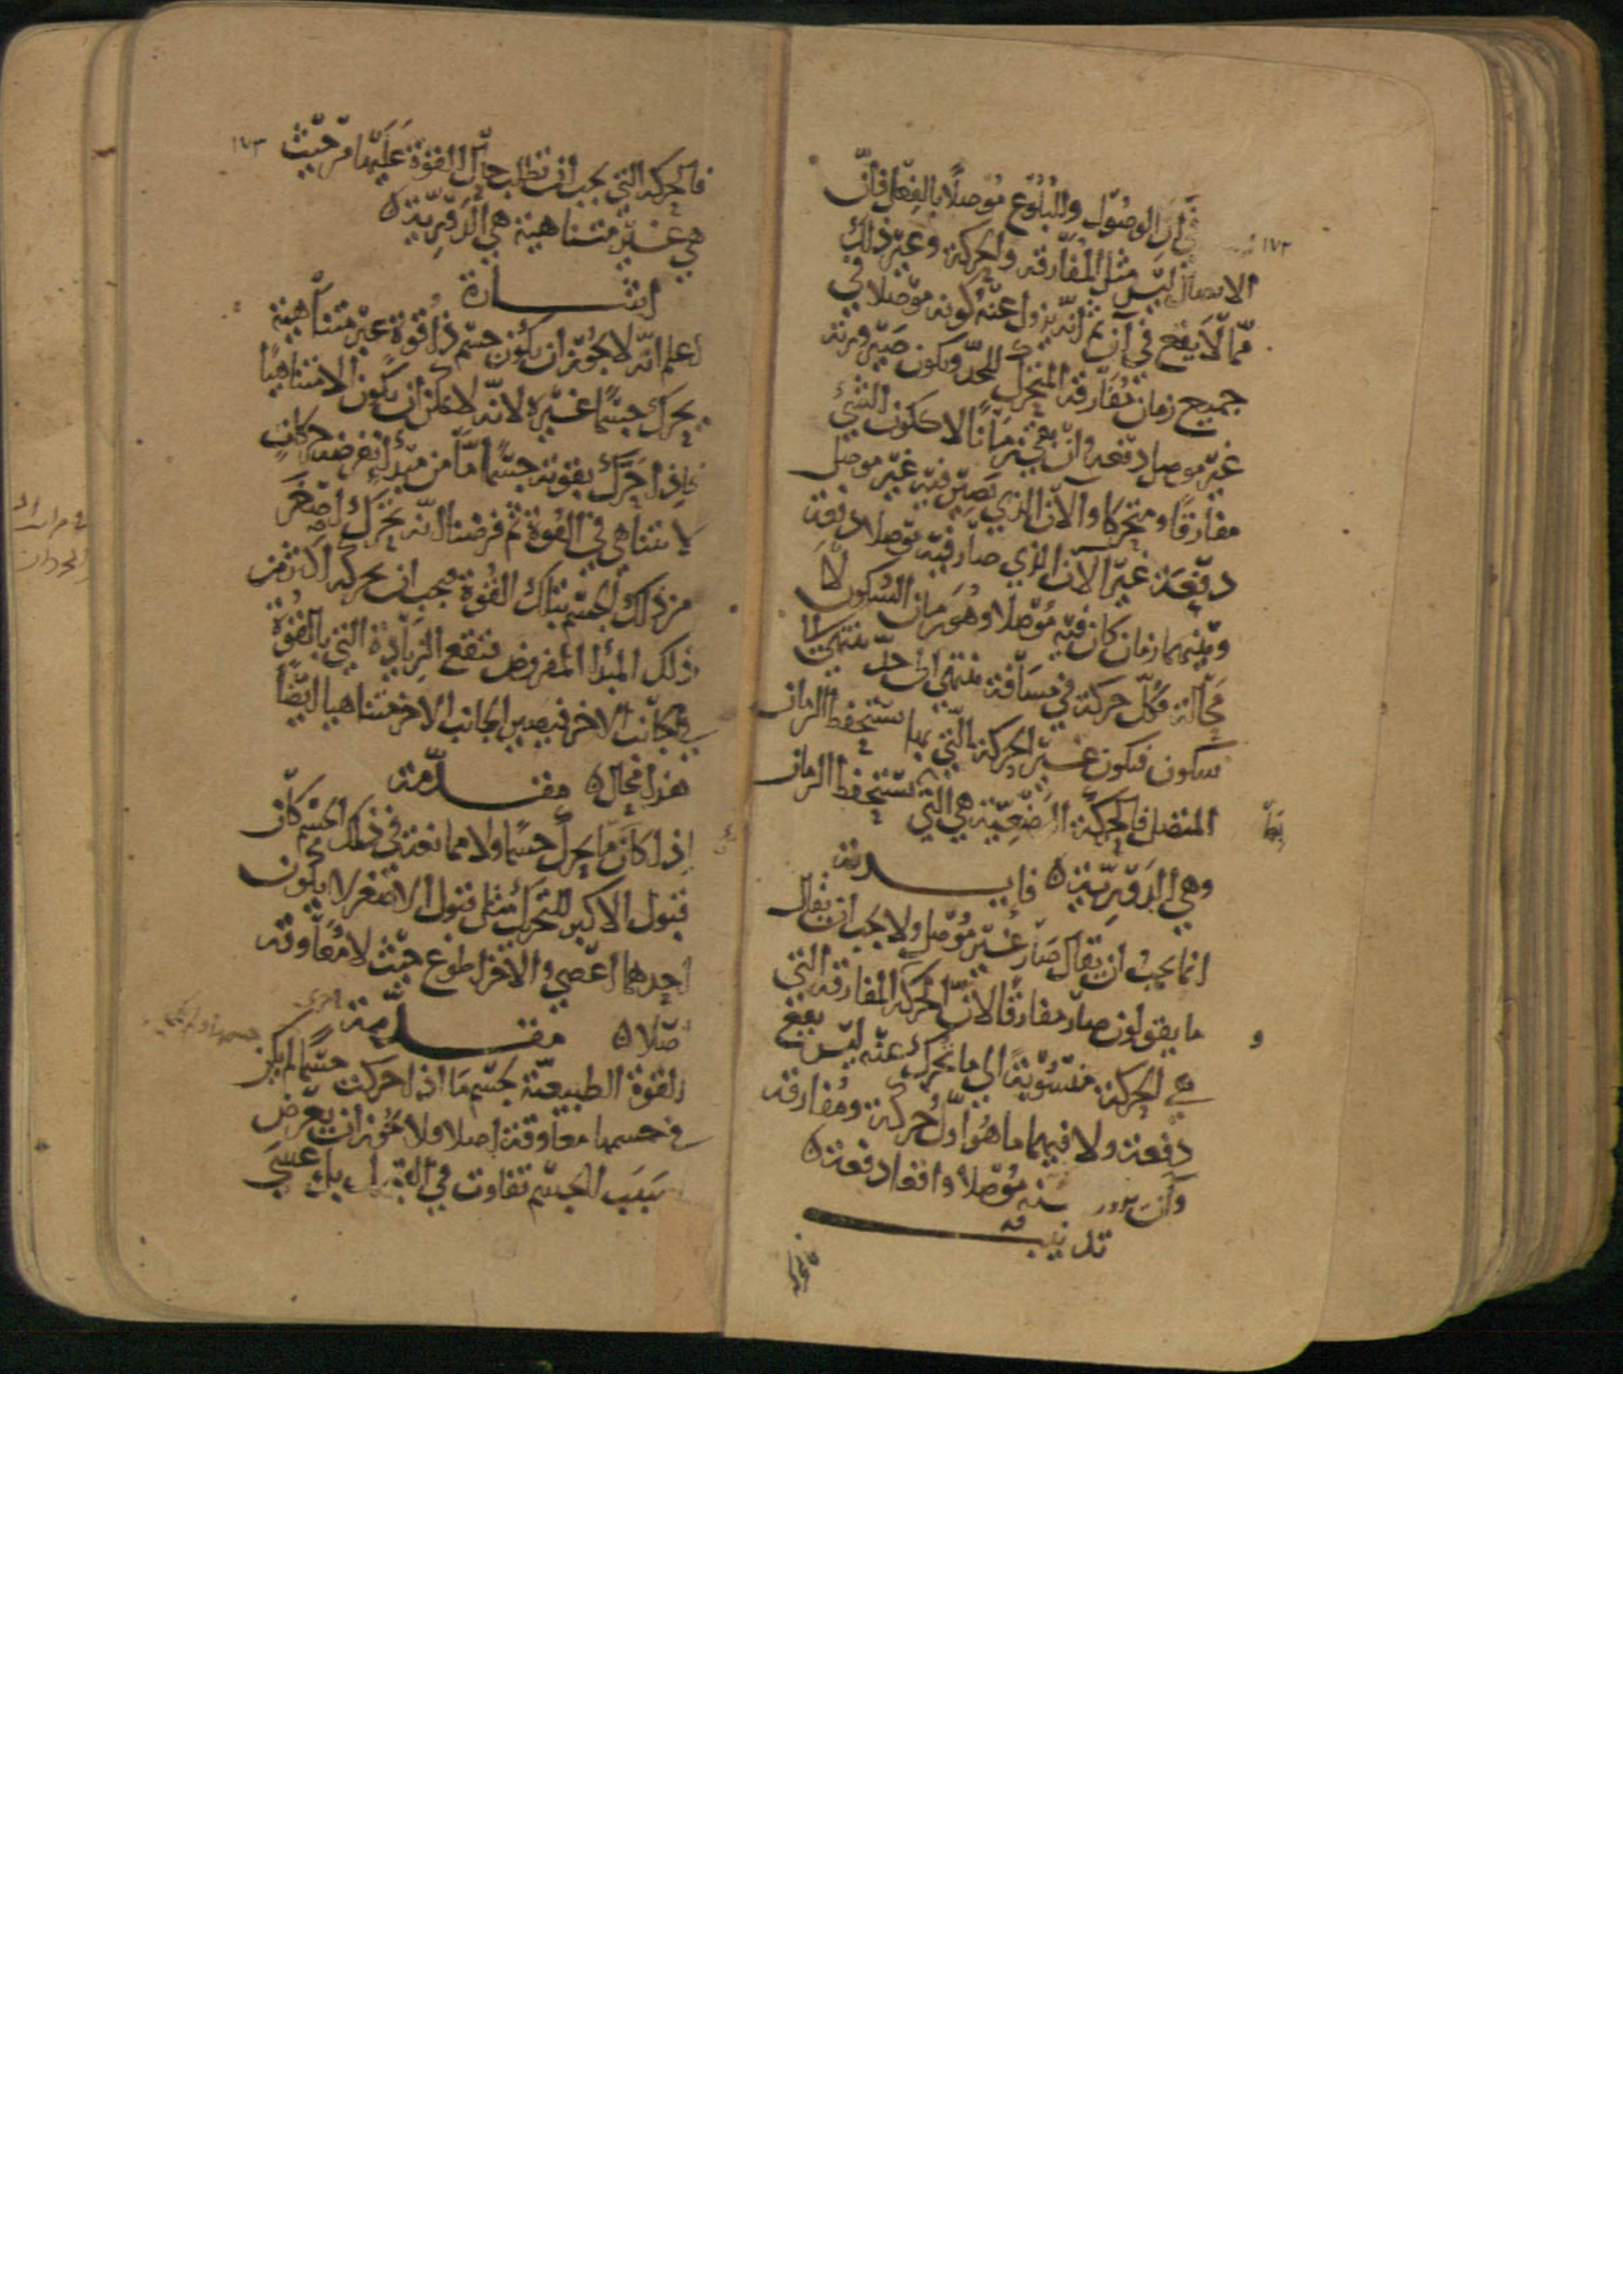 آن الوصول والبلوغ موصلا بالفعل فان
الايصال ليس مثل المفارقة والحركة وغير ذلك
مما لا يقع في آن ثم انه يزول عنه كونه موصلا في
جميع زمان مفارقة المتحرك للحد ويكون صيرورته
غير موصل دفعة وان بقي زمانا لا ككون الشيء
مفارقا ومتحركا والآن الذي يصير فيه غير موصل
دفعة غير الآن الذي صار فيه موصلا دفعة
وبينهما زمان كان فيه موصلا وهو زمان السكون لا
محالة فكل حركة في مسافة تنتهي الى حد تنتهي الى
سكون فيكون غير الحركة التي بها يستحفظ الزمان
المتصل فالحركة الوضعية هي التي تستحفظ الزمان
وهي الدورية ه فايدة
انما يجب ان يقال صار غير موصل ولا يجب ان يقال
ما يقولون صار مفارقا لان الحركة المفارقة التي
هي الحركة منسوبة الى ما يتحرك عنه ليس يقع
دفعة ولا فيهما ما هو اول حركة ومفارقة
وان موصلا واقعا دفعة ه
تذنيب
١٧٣
فالحركة التي يجب ان تطلب حال القوة عليها من حيث
هي غير متناهية هي الدورية ه
اشارة
اعلم انه لا يجوز ان يكون جسم ذا قوة غير متناهية
يحرك جسما غيره لانه لا يمكن ان يكون الا متناهيا
فاذا حرك بقوته جسما ما من مبدأ نفرضه حركات
لا تتناهي في القوة ثم فرضنا انه يحرك اصغر
من ذلك الجسم بتلك القوة فيجب ان يحركه اكثر من
ذلك المبدا المفروض فتقع الزيادة التي بالقوة
في الجانب الاخر فيصير الجانب الاخر متناهيا ايضا
هذا محال ه مقدمة
اذا كان ما يحرك جسما ولا ممانعة في ذلك الجسم كان
قبول الاكبر للتحريك مثل قبول الاصغر لا يكون
احدهما اعصي والاخر اطوع حيث لا معاوقة
اصلا ه مقدمة اخرى
القوة الطبيعية لجسم ما اذا حركت جسما لم يكن
في جسمها معاوقة اصلا فلا يجوز ان يعرض
بسبب الجسم تفاوت في القبول بل عسى